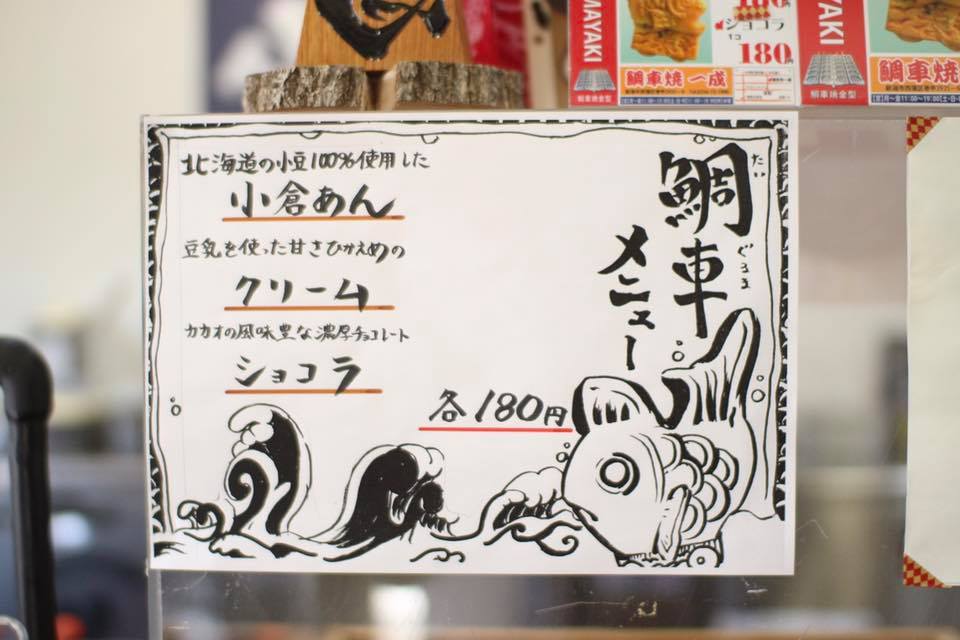 鯛車
たいぐるま
メニュー
北海道の小豆100%使用した
小倉あん
豆乳を使った甘さひかえめの
クリーム
カカオの風味豊な濃厚チョコレート
ショコラ
各180円
MAYAKI
鯛車焼金型
ショコラ
1コ
180
鯛車焼 一成
YAKI
鯛車焼金型
鯛車焼